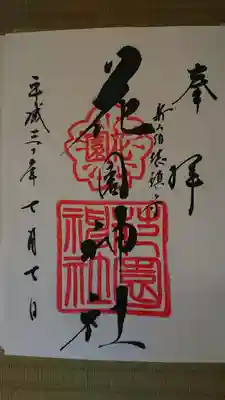 奉拝
新宿総鎮守
花園神社
平成三十年七月七日
花園
花園神社